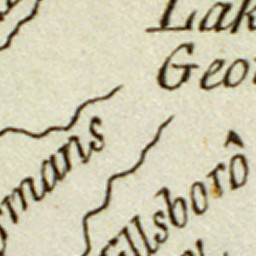 Lak
Geo
rmans
illsborô